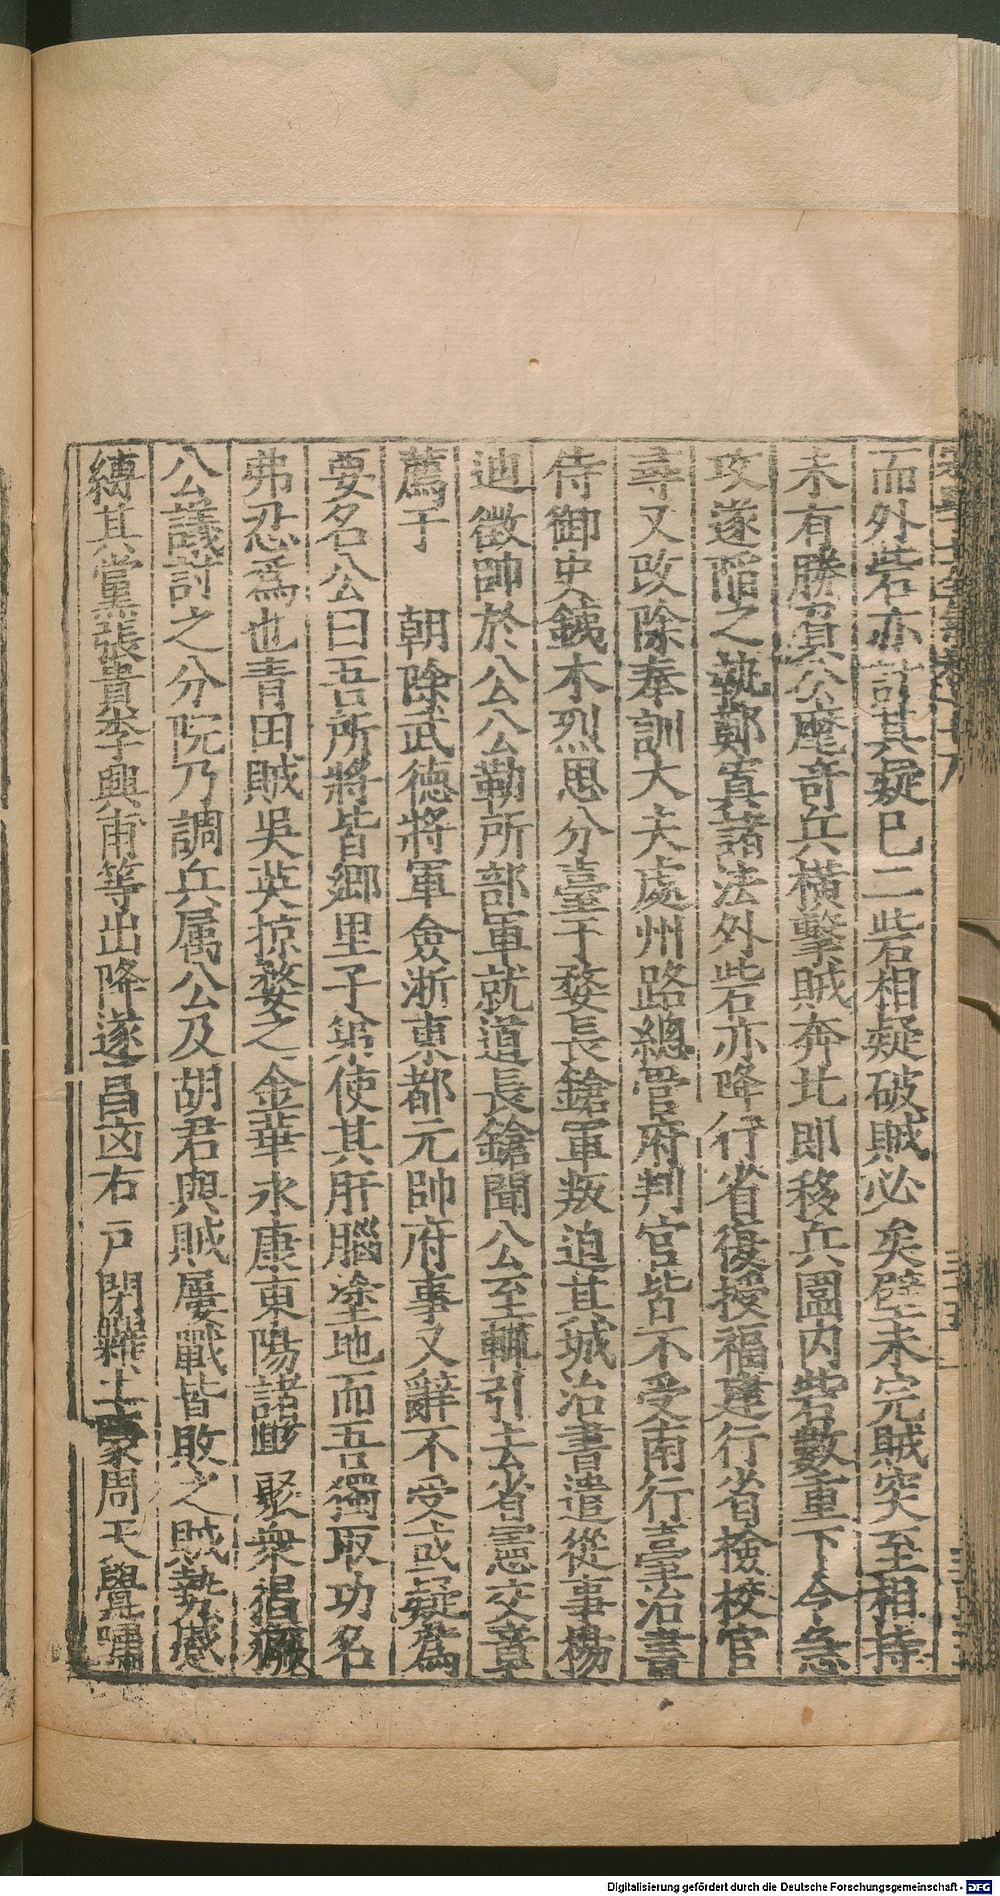 而外砦亦討其疑已二砦相疑破賊必矣壁未完賊突至相持
未有勝負公麾奇兵橫擊賊奔北即移兵圍内砦數重下令急
攻遂陷之執鄭寘諸法外砦亦降行省復授福建行省檢校官
尋又改除奉訓大夫處州路總管府判官皆不受南行臺治書
侍御史銕木烈思分臺于婺長鎗軍叛迫其城治書遣從事楊
迪徵帥於公公勒所部軍就道長鎗聞公至輒引去省憲交章
薦于　朝除武德將軍僉浙東都元帥府事又辭不受或疑爲
要名公曰吾所將皆鄉里子弟使其肝腦塗地而吾獨取功名
弗忍爲也青田賊吳英掠婺之金華永康東陽諸 聚衆猖獗
公議討之分院乃調兵属公及胡君與賊屢戰皆敗之賊勢慼
縛其黨張貴李興甫等出降遂昌 右 戶閉糶土豪周天覺嘯
Digitalisierung gefördert durch die Deutsche Forschungsgemeinschaft - DFG